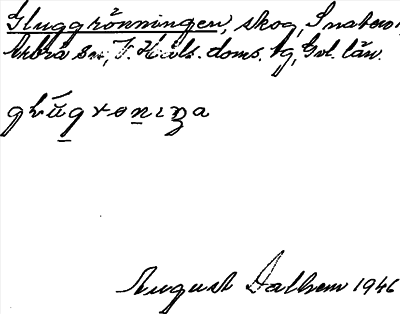 Gluggrönningen, skog, Snaten,
Arbrå sn, V. Häls. doms. tg, Gvl. län.
glŭgrønıŋa
August Dalhem 1946